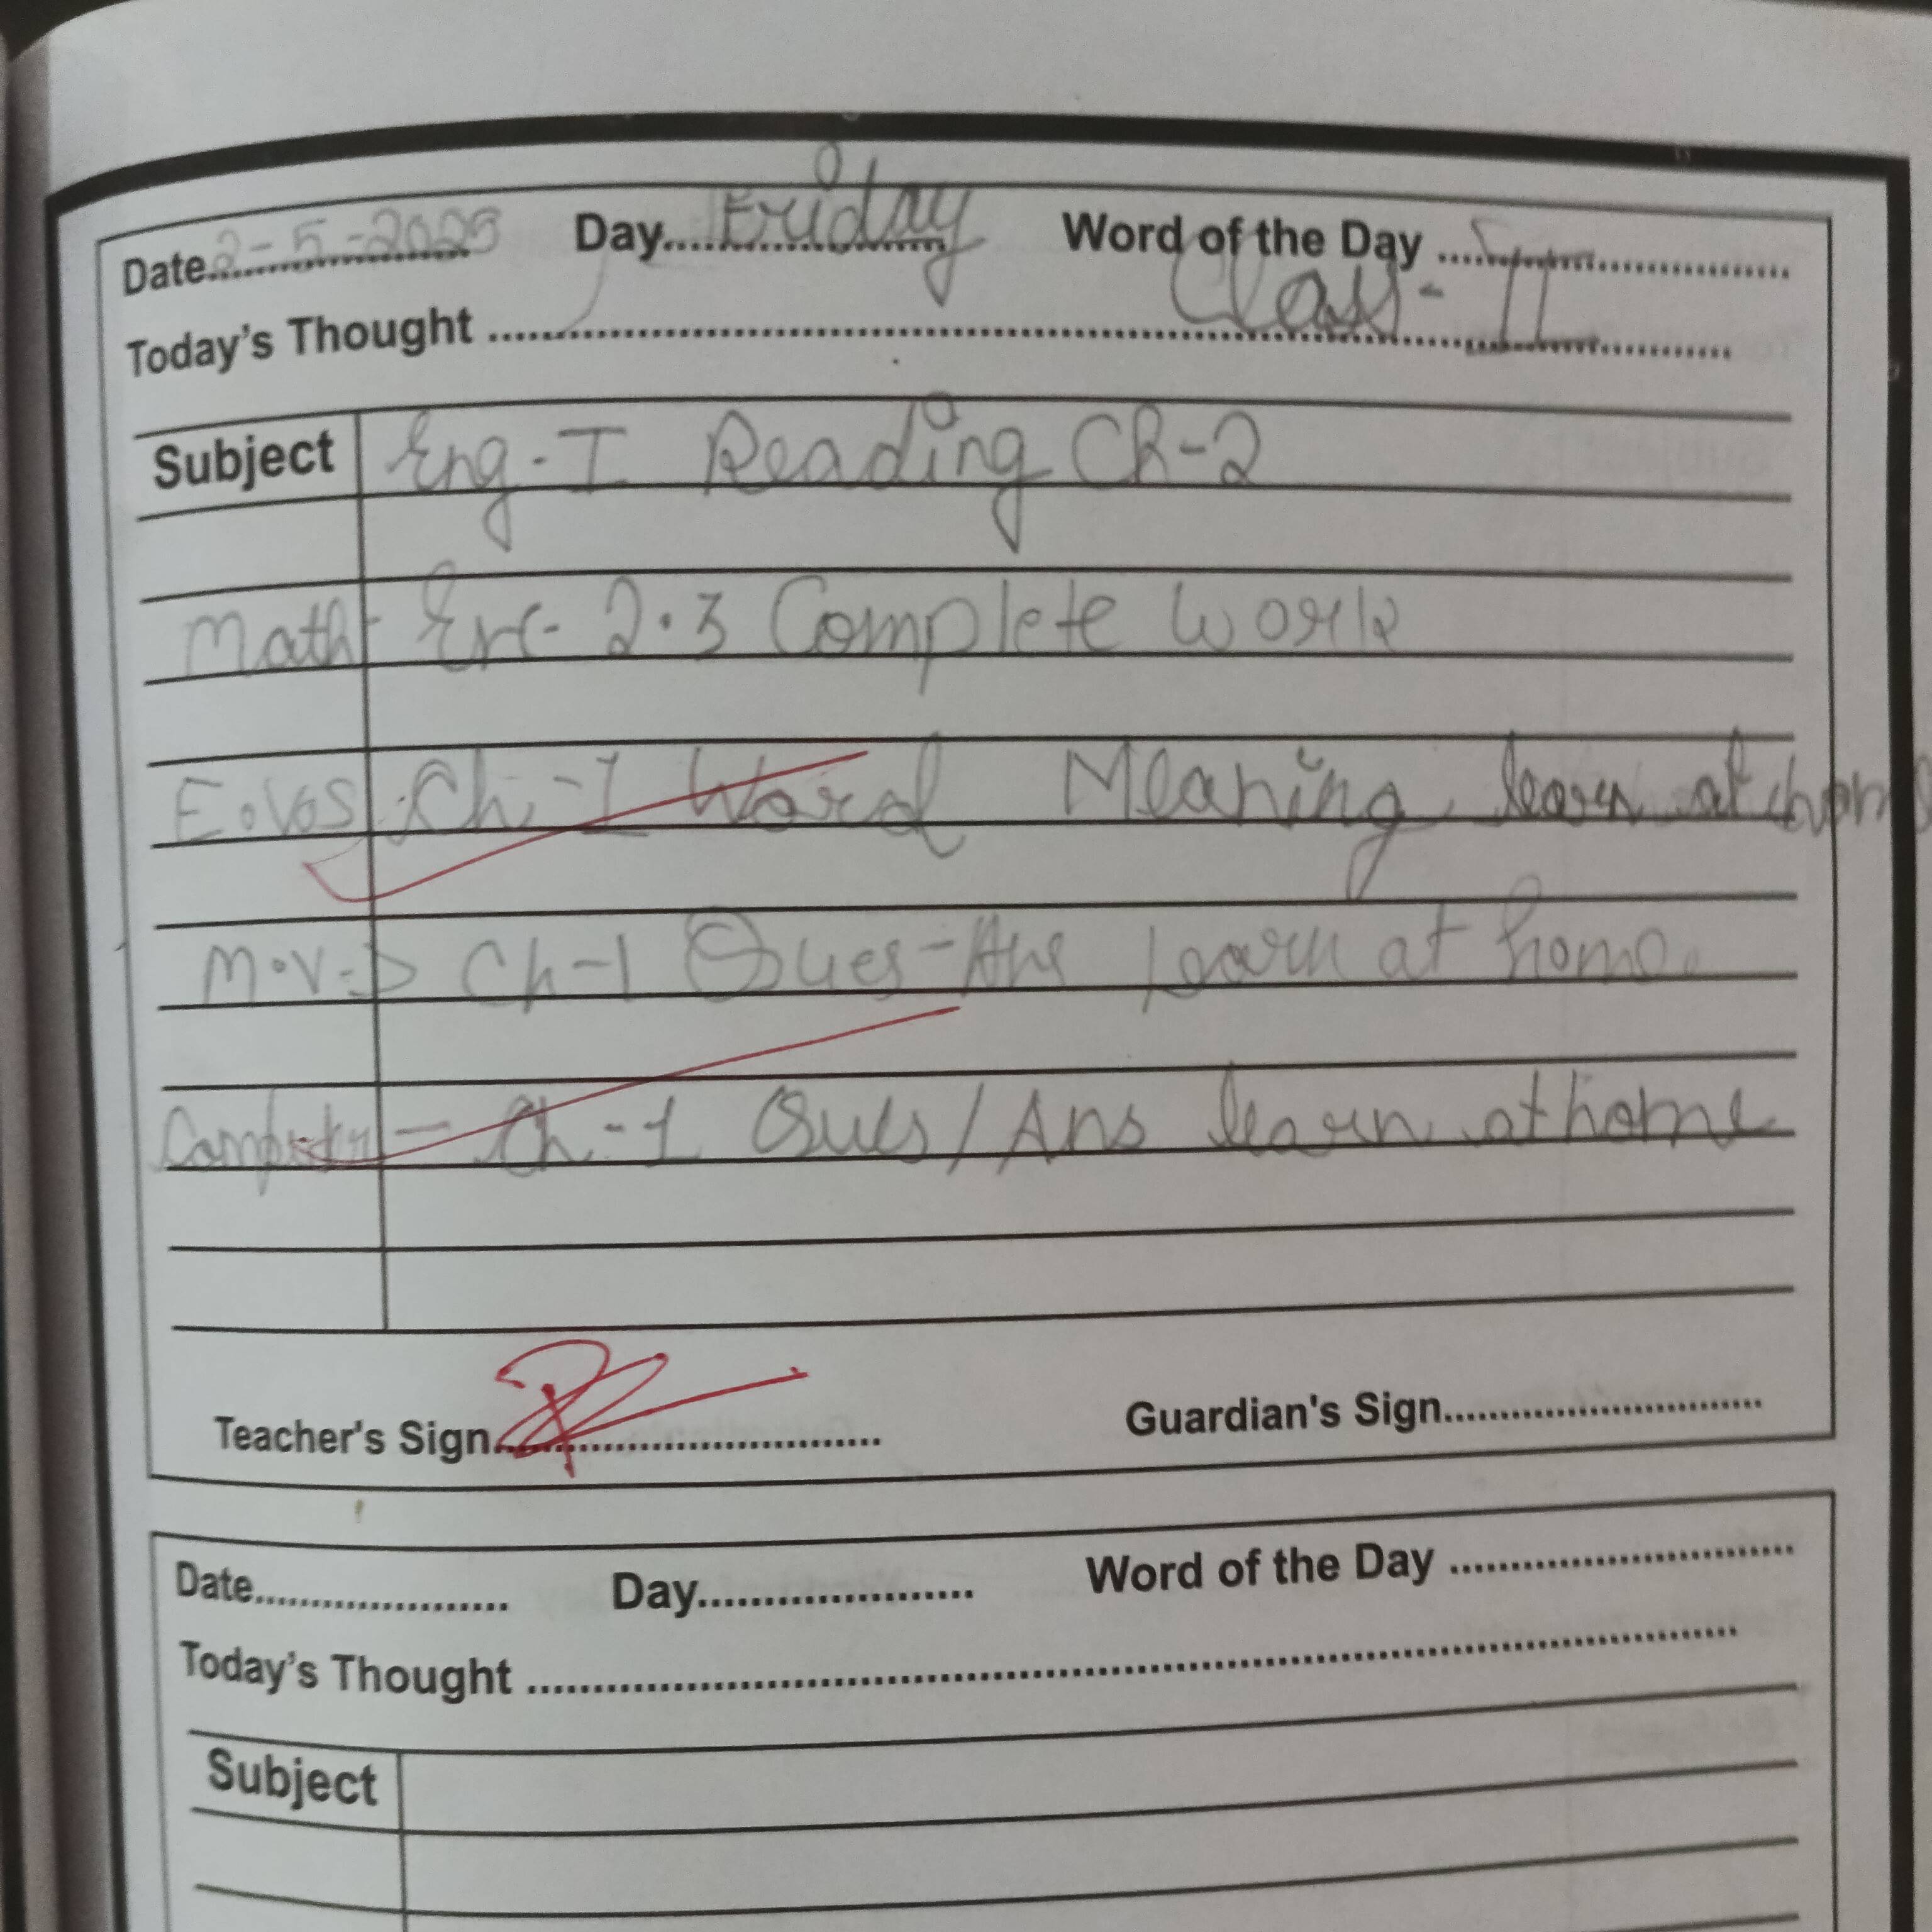 Date 2-5-2025 Day Friday Word of the Day
Today's Thought Class-II
Subject Eng-I Reading Ch-2
Math Exc- 2.3 Complete Work
E.V.S Ch-1 Word Meaning learn at home
M.V.→ Ch-1 Ques-Ans learn at home.
Computer - Ch-1 Ques/Ans learn at home
Teacher's Sign Guardian's Sign
Date Day Word of the Day
Today's Thought
Subject